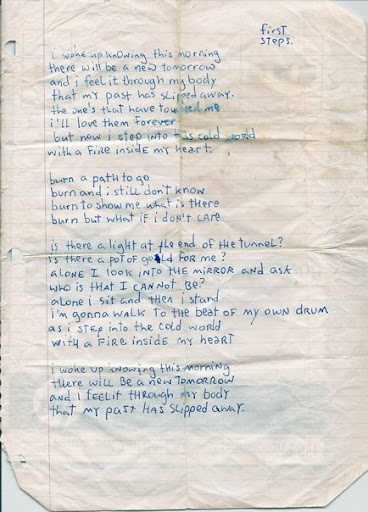 first
steps.
i woke up knowing this morning
there will be a new tomorrow
and i feel it through my body
that my past has slipped away.
the one's that have touched me
i'll love them forever
but now i step into this cold world
with a fire inside my heart.
burn a path to go
burn and i still don't know
burn to show me what is there
burn but what if i don't care
is there a light at the end of the tunnel?
is there a pot of gold for me?
alone I look into the mirror and ask
who is that I cannot be?
alone i sit and then i stand
i'm gonna walk to the beat of my own drum
as i step into the cold world
with a fire inside my heart
i woke up knowing this morning
there will be a new tomorrow
and i feel it through my body
that my past has slipped away.